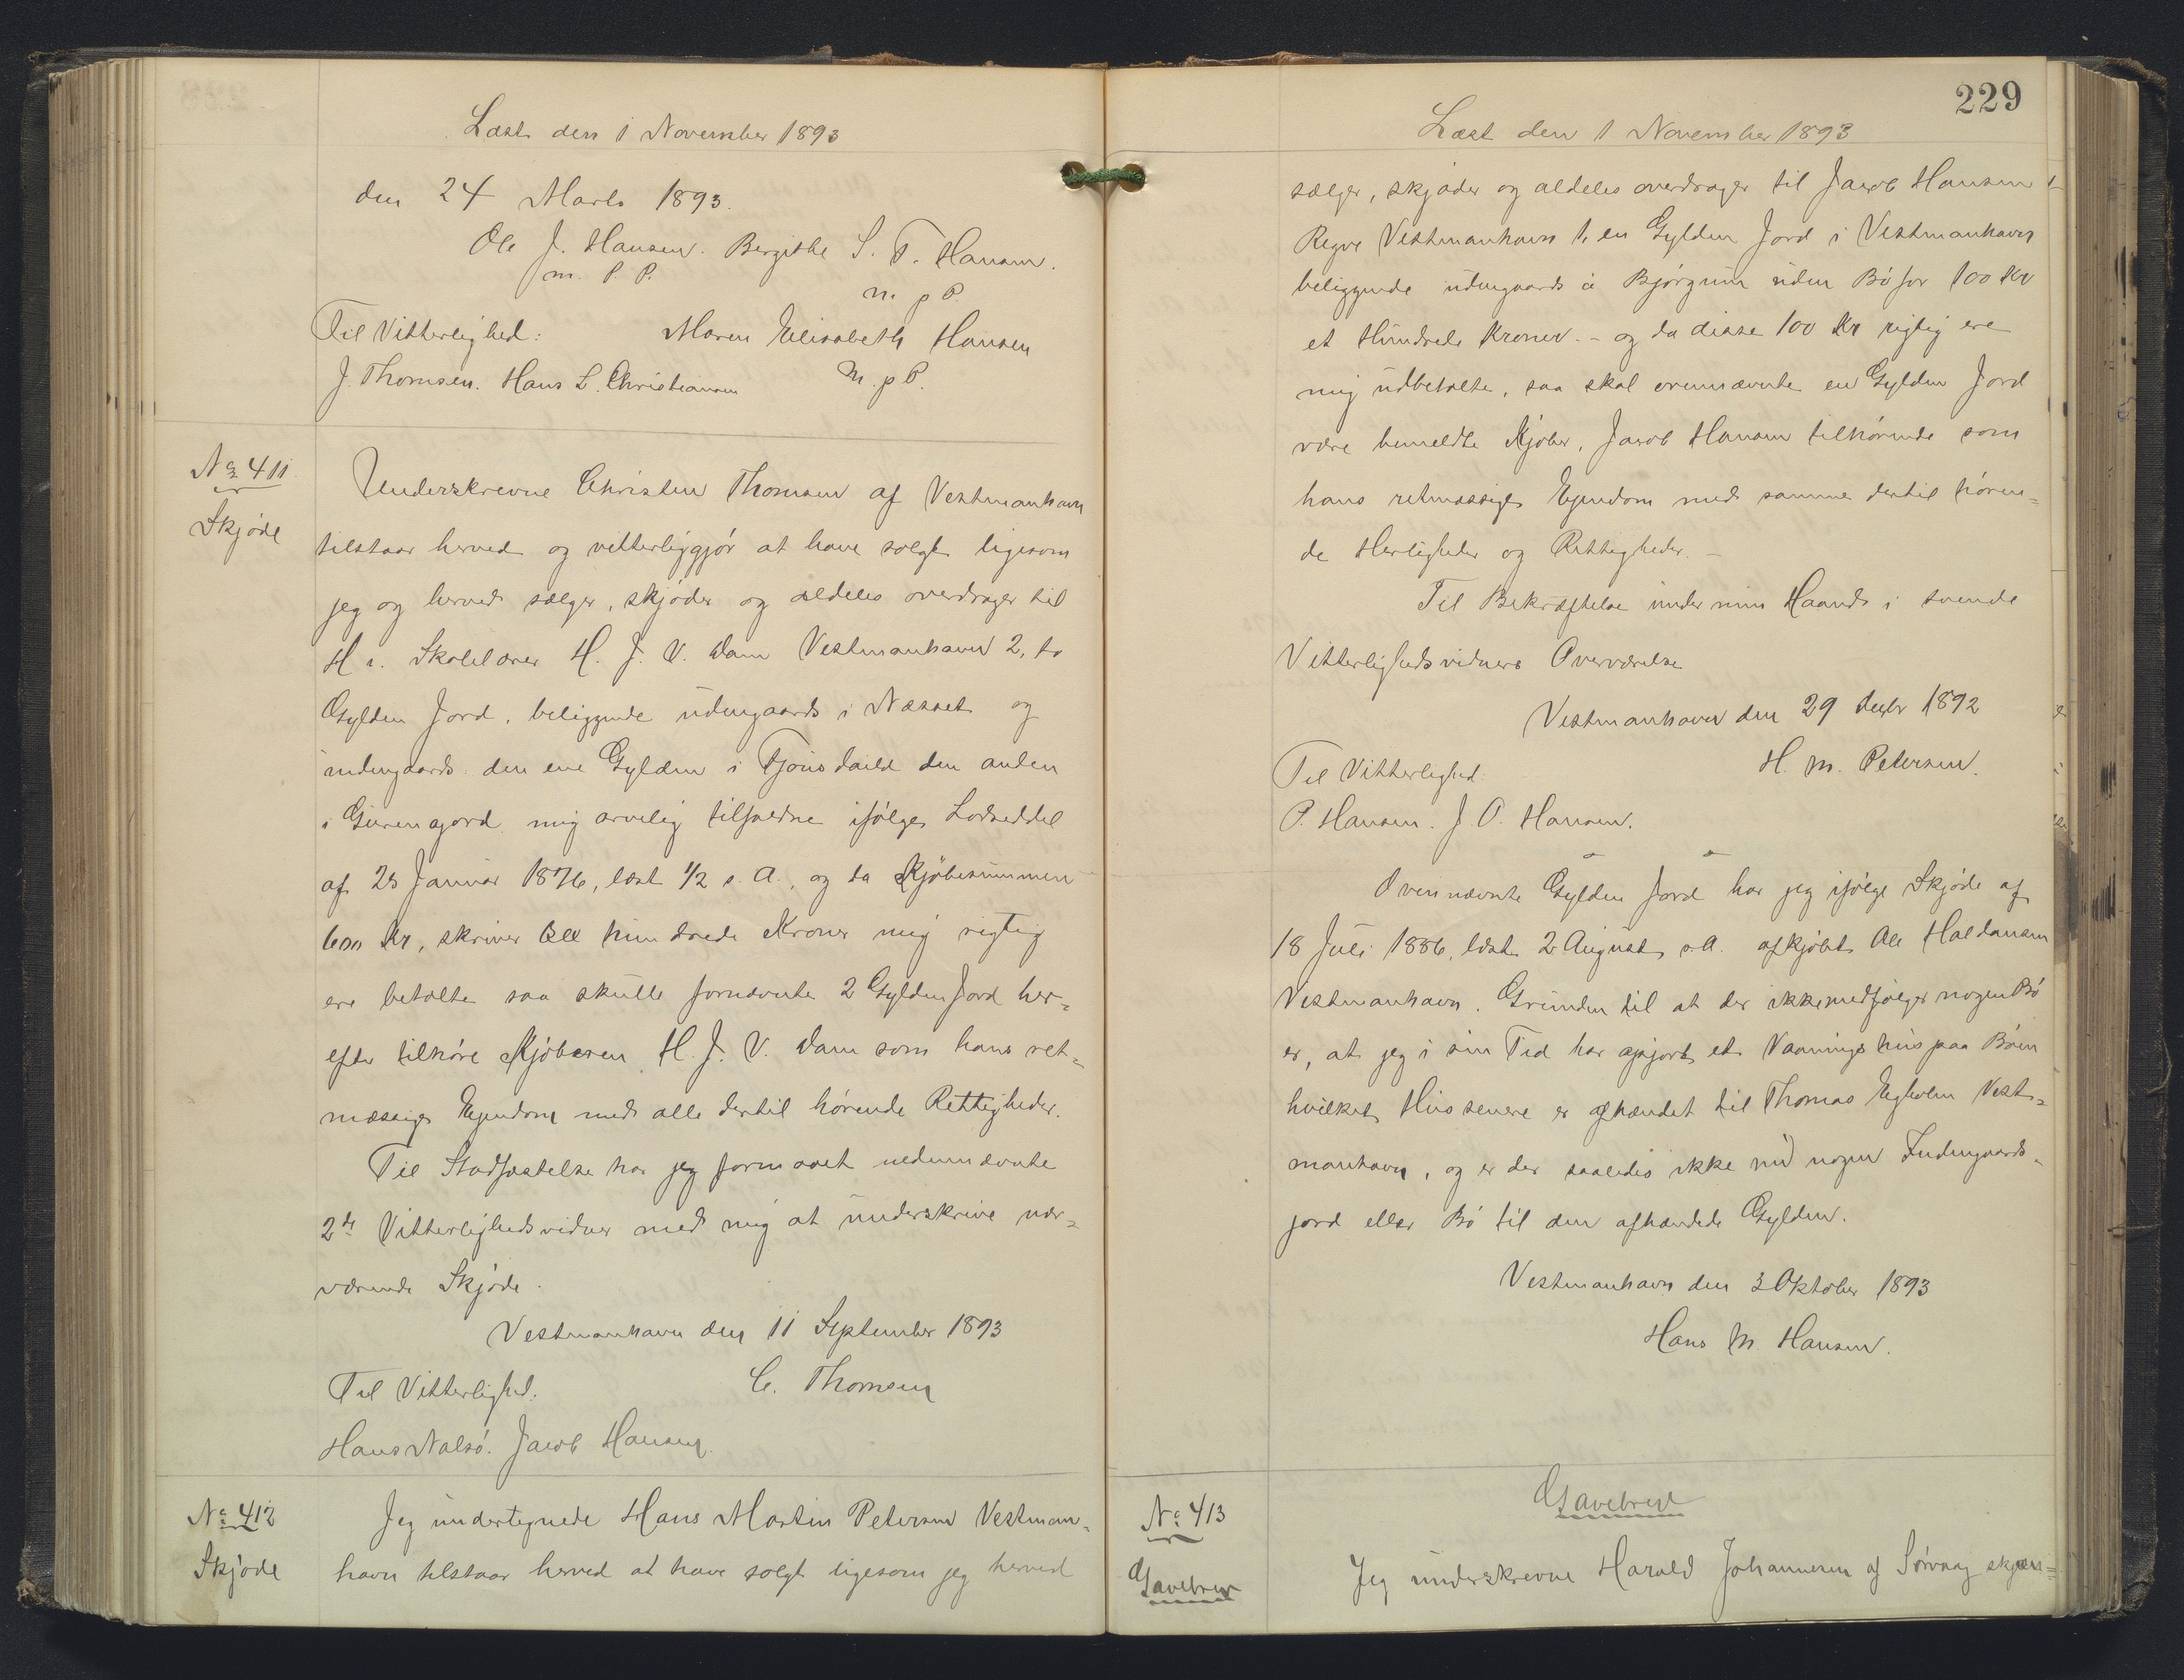 Læst den 1 November 1893
den 24 Marts 1893.
Ole J. Hansen. Bergithe S. T. Hansen.
m. P. P.
m p P.
Til Vitterlighed: Maren Elisabeth Hansen
J. Thomsen. Hans L. Christiansen m. p P.
No 411
Skjöde
Underskrevne Christen Thomsen af Vestmanhavn
tilstaar herved og vitterliggjör at have solgt ligesom
jeg og herved sælger, skjöder og aldeles overdrager til
Hr. Skolelærer H. J. V. Dam Vestmanhavn 2, to
Gylden Jord, beliggende udengaards i Næsset og
indengaards: den ene Gylden i den anden
i mig arvelig tilfaldne ifölge Lodseddel
af 25 Januar 1876, læst 1/2 s. A., og da Kjöbesummen
600 Kr, skriver hundrede Kroner mig rigtig
ere betalte saa skulle fornævnte 2 Gylden Jord her=
efter tilhöre Kjöberen H. J. V. Dam som hans ret=
mæssige Ejendom med alle dertil hörende Rettigheder.
Til Stadfæstelse har jeg formaaet nedennævnte
2de Vitterlighedsvidner med mig at underskrive nær=
værende Skjöde.
Vestmanhavn den 11 September 1893
Til Vitterlighed: C. Thomsen
Hans Nalsö. Jacob Hansen.
No 412
Skjöde
Jeg undertegnede Hans Martin Petersen Vestman=
havn tilstaar herved at have solgt ligesom jeg herved
229
Læst den 1 November 1893
sælger, skjöder og aldeles overdrager til Jacob Hansen
Vestmanhavn 1, en Gylden Jord i Vestmanhavn
beliggende udengaards á uden Bö for 100 Kr
et Hundrede Kroner. - og da disse 100 Kr rigtig ere
mig udbetalte, saa skal ovennævnte en Gylden Jord
være bemeldte Kjöber, Jacob Hansen tilhörende som
hans retmæssige Ejendom med samme dertil hören=
de Herligheder og Rettigheder. -
Til Bekræftelse under min Haand i tvende
Vitterlighedsvidners Overværelse
Vestmanhavn den 29 Decbr 1892
Til Vitterlighed: H. M. Petersen.
P. Hansen. J. O. Hansen.
Ovennævnte Gylden Jord har jeg ifölge Skjöde af
18 Juli 1886, læst 2 August s. A. afkjöbt Ole Haldansen
Vestmanhavn. Grunden til at der ikke medfölger nogen Bö
er, at jeg i sin Tid har opfört et Vaaningshus paa Böen
hvilket Hus senere er afhændet til Thomas Egholm Vest=
manhavn, og er der saaledes ikke nu nogen Indengaards=
jord eller Bö til den afhændede Gylden.
Vestmanhavn den 3 Oktober 1893
Hans M. Hansen.
No 413
Gavebrev
Gavebrev
Jeg underskrevne Harald Johannesen af Sörvaag skjæn=